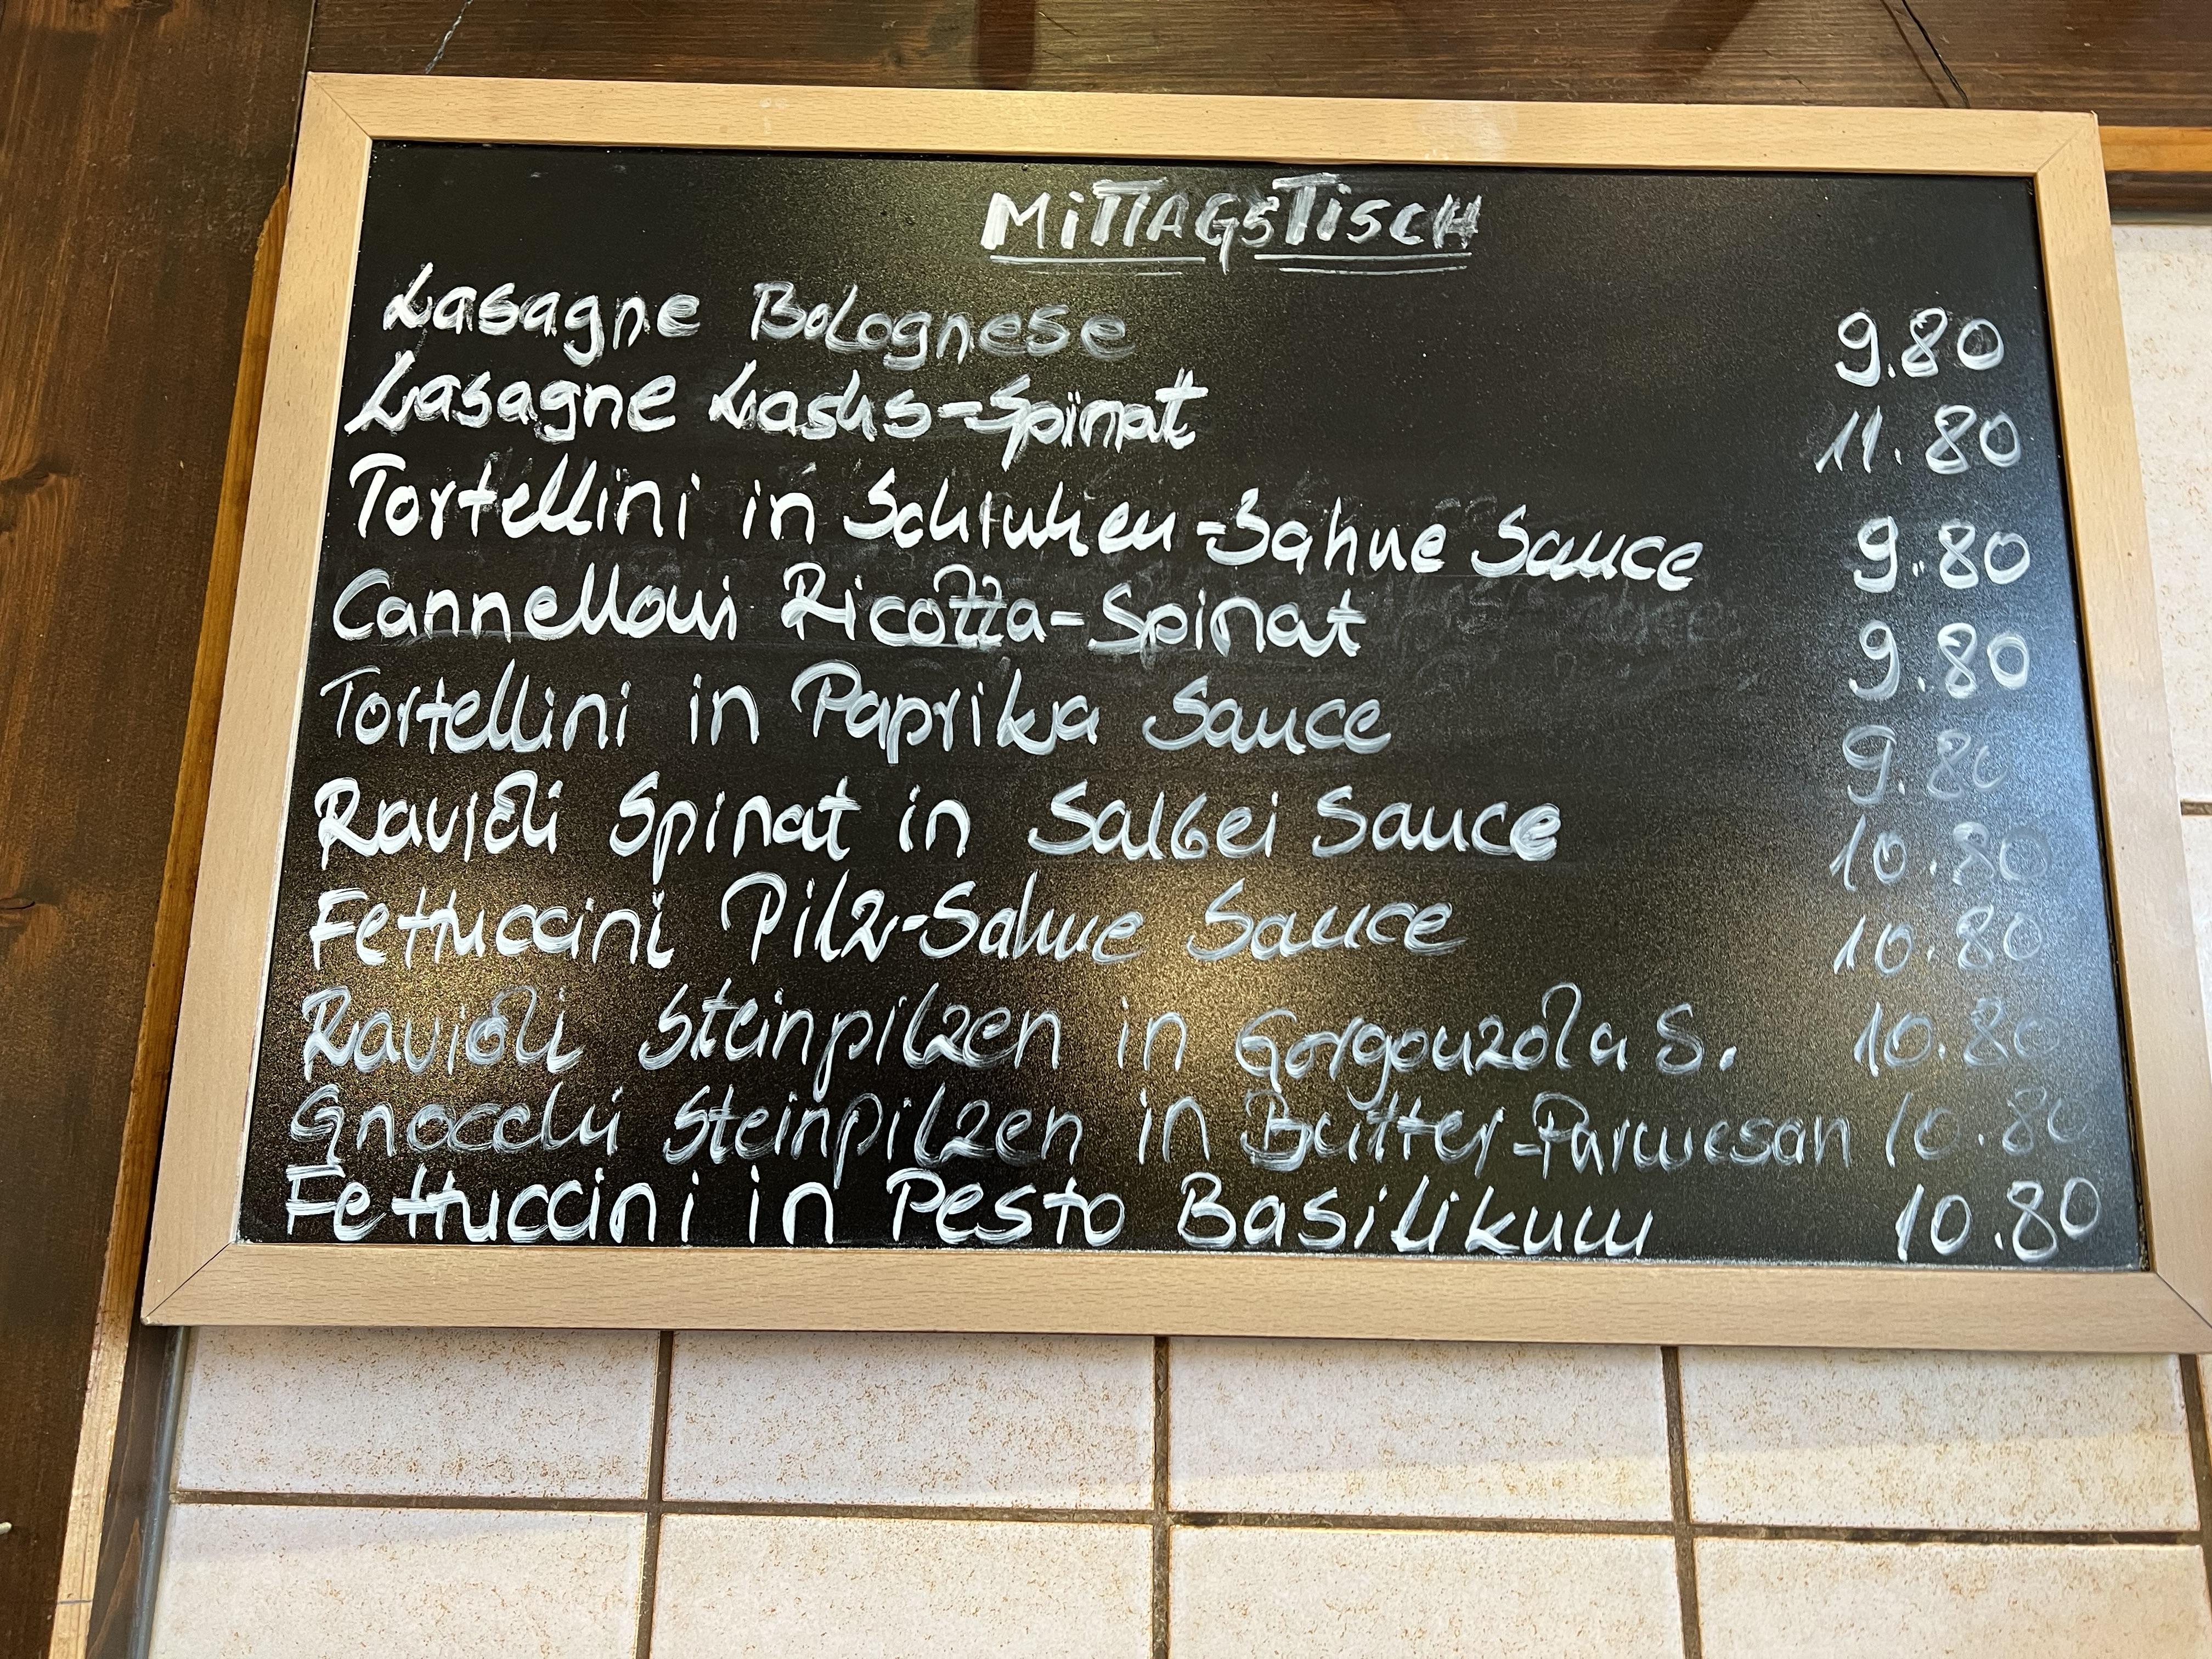 MiTTAGSTiSCH
Lasagne Bolognese 9.80
Lasagne Lachs-Spinat 11.80
Tortellini in Schinken-Sahne Sauce 9.80
Cannelloni Ricotta-Spinat 9.80
Tortellini in Paprika Sauce 9.80
Ravioli Spinat in Salbei Sauce 10.80
Fettuccini Pilz-Sahne Sauce 10.80
Ravioli Steinpilzen in Gorgonzola S. 10.80
Gnocchi Steinpilzen in Butter-Parmesan 10.80
Fettuccini in Pesto Basilikum 10.80